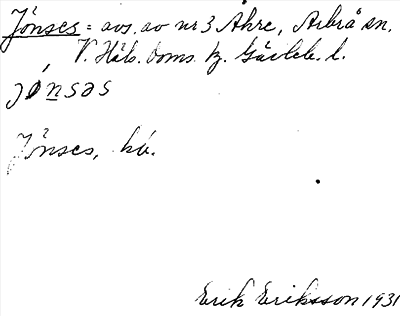 Jönses = avs. av nr 3 Åkre, Arbrå sn,
V. Häls. doms. tg. Gävleb. l.
jǿnsəs
Jönses, hö.
Erik Eriksson 1931